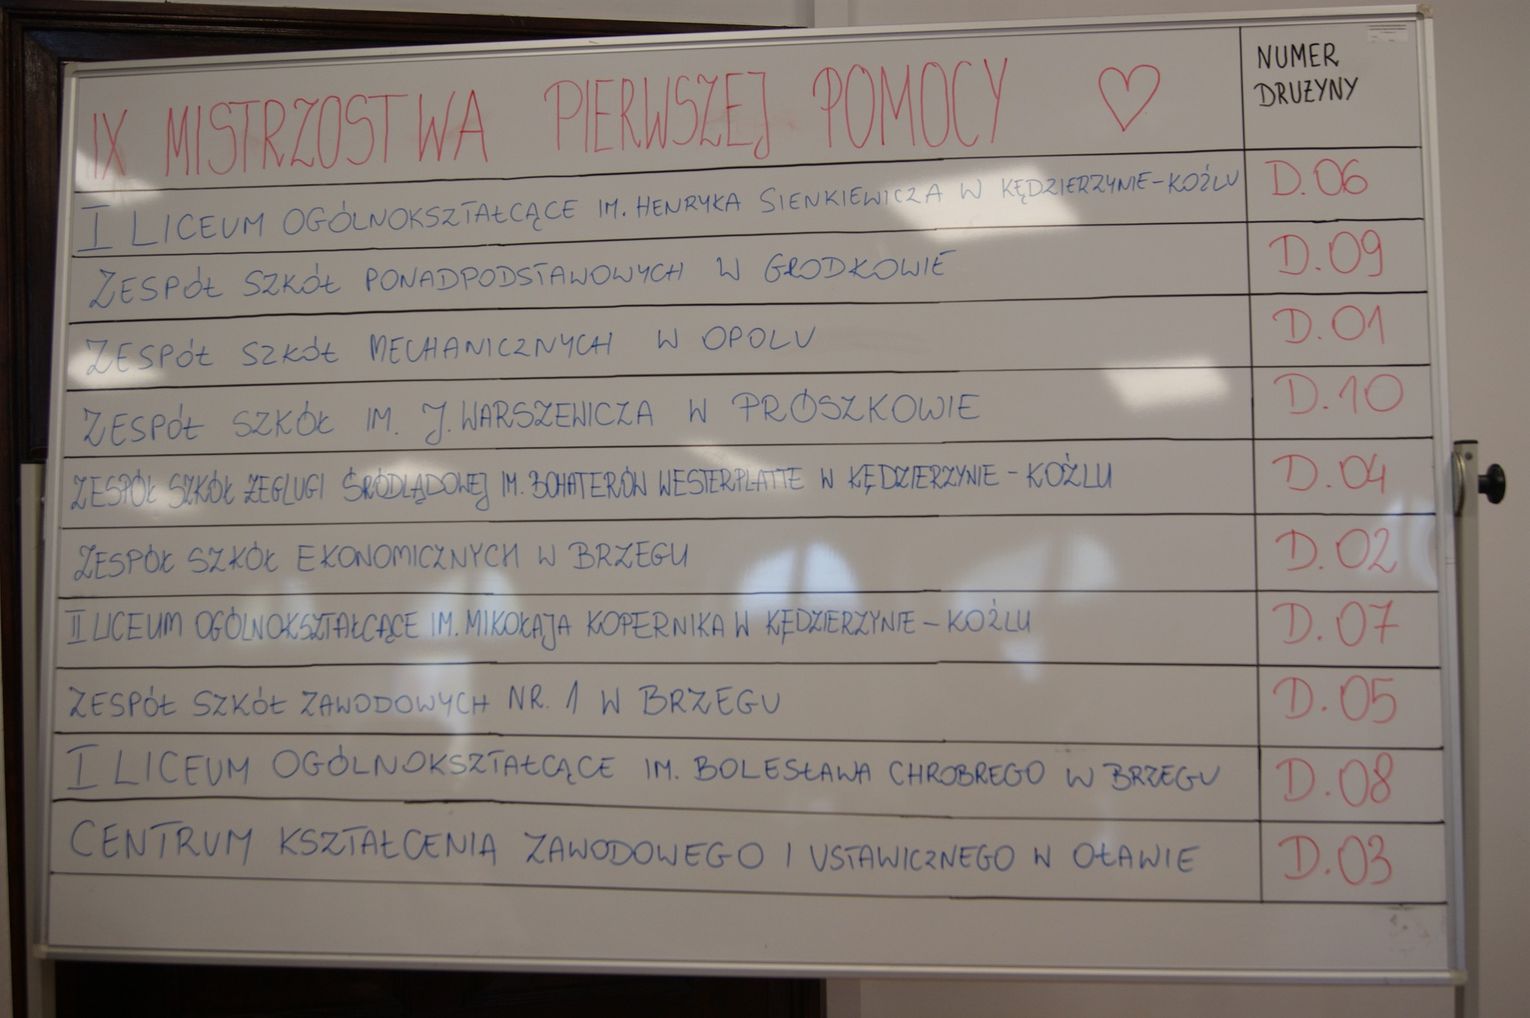 IX MISTRZOSTWA PIERWSZEJ POMOCY ♡
NUMER
DRUŻYNY
I LICEUM OGÓLNOKSZTAŁCĄCE IM. HENRYKA SIENKIEWICZA W KĘDZIERZYNIE-KOŹLU D.06
ZESPÓŁ SZKÓŁ PONADPODSTAWOWYCH W GRODKOWIE D.09
ZESPÓŁ SZKÓŁ MECHANICZNYCH W OPOLU D.01
ZESPÓŁ SZKÓŁ IM. J. WARSZEWICZA W PRÓSZKOWIE D.10
ZESPÓŁ SZKÓŁ ŻEGLUGI ŚRÓDLĄDOWEJ IM. BOHATERÓW WESTERPLATTE W KĘDZIERZYNIE - KOŹLU D.04
ZESPÓŁ SZKÓŁ EKONOMICZNYCH W BRZEGU D.02
II LICEUM OGÓLNOKSZTAŁCĄCE IM. MIKOŁAJA KOPERNIKA W KĘDZIERZYNIE - KOŹLU D.07
ZESPÓŁ SZKÓŁ ZAWODOWYCH NR. 1 W BRZEGU D.05
I LICEUM OGÓLNOKSZTAŁCĄCE IM. BOLESŁAWA CHROBREGO W BRZEGU D.08
CENTRUM KSZTAŁCENIA ZAWODOWEGO I USTAWICZNEGO W OŁAWIE D.03